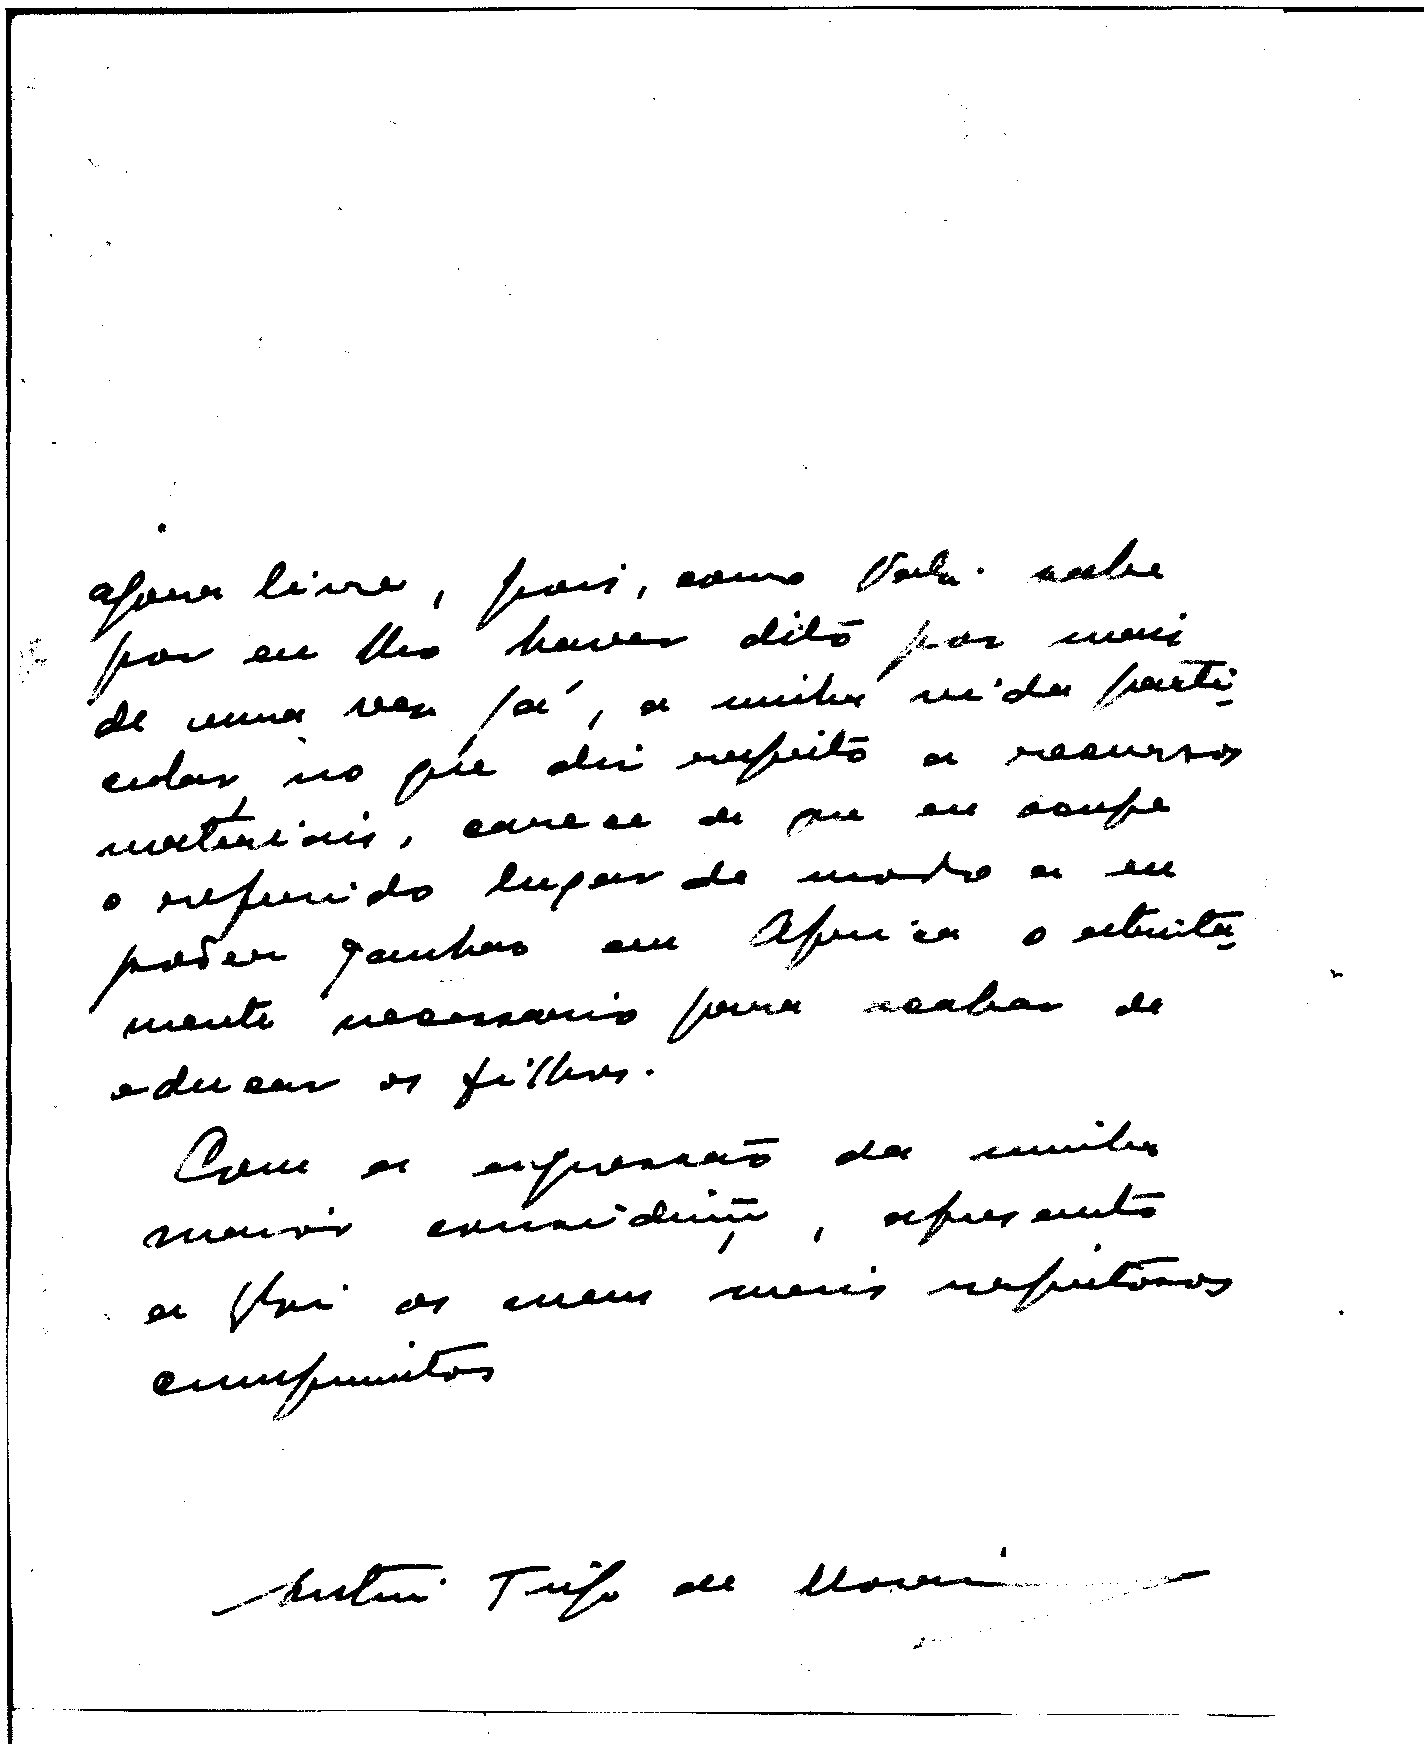 agora livre, pois, como V. Exa. sabe
por eu lho haver dito por mais
de uma vez já, a minha vida parti-
cular, no que diz respeito a recursos
materiais, carece de que eu ocupe
o referido lugar de modo a eu
poder ganhar em Africa o estrita-
mente necessario para acabar de
educar os filhos.
Com a expressão da minha
maior considração, apresento
a os meus mais respeitosos
cumprimentos
Trigo de Morais